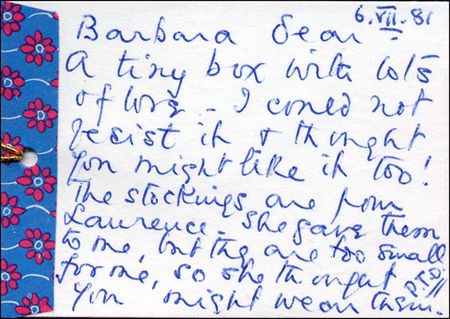 6.VII.81
Barbara dear
A tiny box with lots
of love - I could not
resist it & thought
you might like it too!
The stockings are from
Laurence - she gave them
to me, but they are too small
for me, so she thought
you might wear them.
P.T.O.